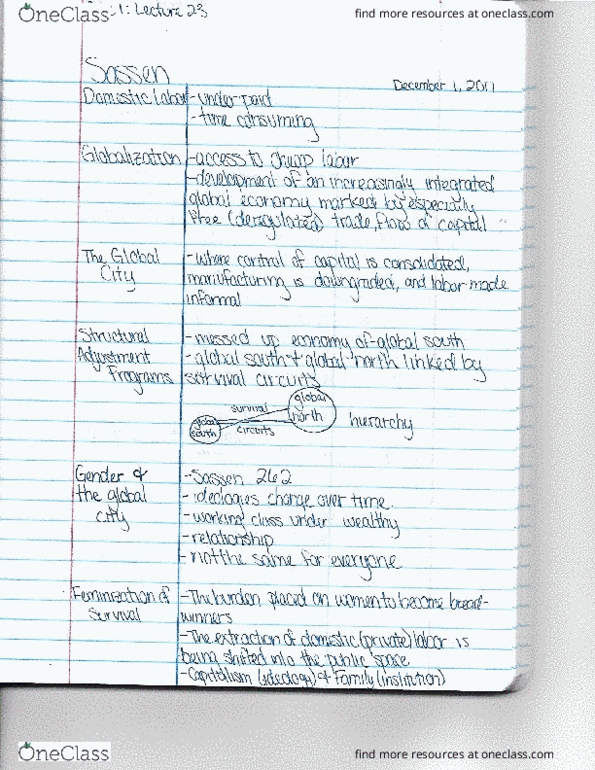 OneClass
find more resources at oneclass.com
1: Lecture 23
Sassen
December 1, 2011
Domestic Labor -under-paid
-time consuming
Globalization -access to cheap labor
-development of an increasingly integrated
global economy marked by especially
free (deregulated) trade, flow of capital
The Global City
-where control of capital is consolidated,
manufacturing is downgraded, and labor made
informal
Structural Adjustment Programs
-messed up economy of global south
-global south + global north linked by
survival circuits
global south
survival
circuits
global north
hierarchy
Gender & the global city
-Sassen 262
-ideologies change over time.
-working class under wealthy
-relationship
-not the same for everyone
Feminization of Survival
-The burden placed on women to become bread-
winners
-The extraction of domestic (private) labor is
being shifted into the public space
-Capitalism (ideology) & Family (institution)
OneClass
find more resources at oneclass.com